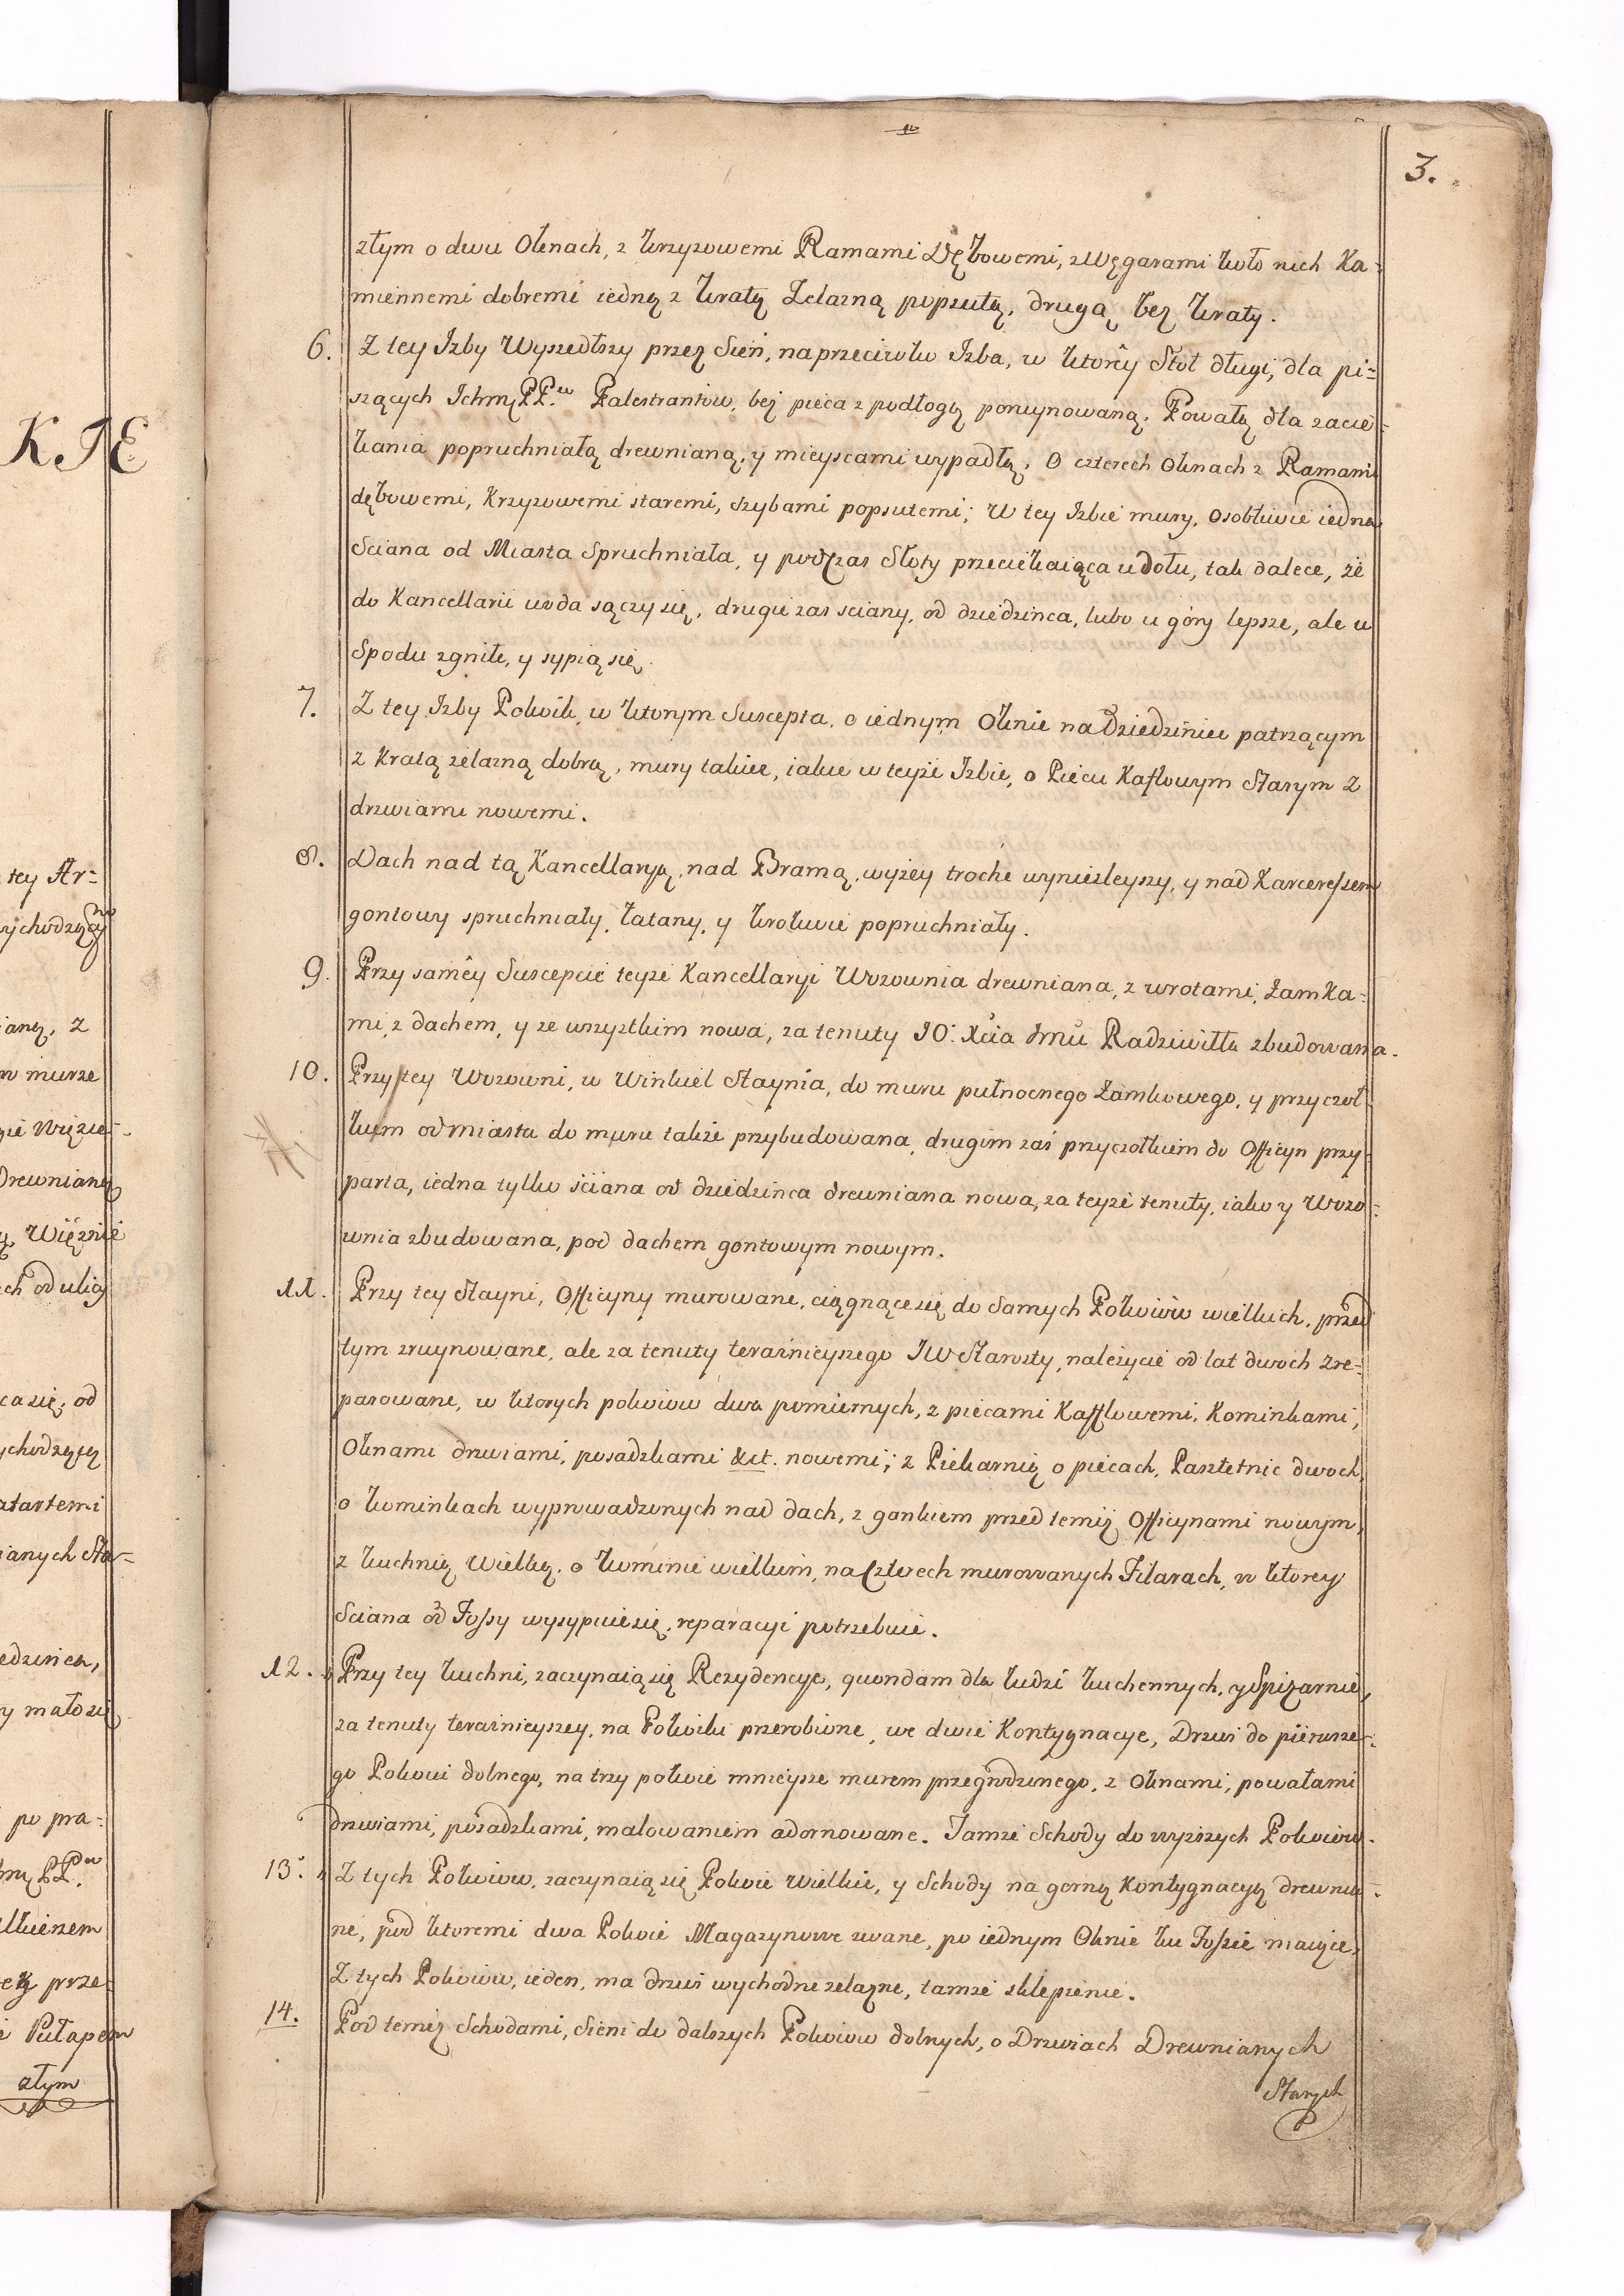 3.
złym o dwu Oknach, z krzyzowemi Ramami Dębowemi, z Węgarami koło nich Ka=
miennemi dobremi iedną z kratą Zelazną popsutą, drugą bez kraty.
6. Z tey Izby Wyszedłszy przez Sień, naprzeciwko Izba, w ktorey Stoł długi, dla pi=
szących Ichmę PP.ow Palestrantow, bez pieca z podłogą porujnowaną. Powałą dla zacie=
kania popruchniałą drewnianą, y mieyscami wypadłą, O czterech oknach z Ramami
dębowemi, Krzyzowemi staremi, szybami popsutemi; W tey Izbie mury, osobliwie iedna
Sciana od Miasta Spruchniała, y podczas Słoty przeciekaiąca u dołu, tak dalece, że
do Kancellarii woda sączy się, drugie zas sciany, od dziedzinca, lubo u góry lepsze, ale u
Spodu zgniłe, y sypią się.
7. Z tey Izby Pokoik, w ktorym Suscepta, o iednym Oknie na Dziedziniec patrzącym
z Kratą zelazną dobrą, mury takiee, iakie w teyże Izbie, o Piecu Kaflowym Starym z
drzwiami nowemi.
8. Dach nad tą Kancellaryą, nad Bramą, wyżey troche wyniesleyszy, y nad Karceressem
gontowy spruchniały, łatany, y krokwie popruchniały.
9. Przy samey Suscepcie teyże Kancellaryi Wozownia drewniana, z wrotami, Zamka=
mi, z dachem, y ze wszystkim nowa, za tenuty JO: Xcia Jmci Radziwiłła zbudowana.
10. Przy tey Wozowni, w Winkiel Staynia, do muru pułnocnego Zamkowego, y przyczoł=
kiem od miasta do muru także przybudowana, drugim zaś przyczołkiem do Officyn przy=
parta, iedna tylko ściana od dziedzinca drewniana nowa, za teyże tenuty, iako y Wozo=
wnia zbudowana, pod dachem gontowym nowym.
11. Przy tey Stayni, Officyny murowane, ciągnące się do Samych Pokoiów wielkich, przed
tym zruynowane, ale za tenuty teraznieyszego JW Starosty, należycie od lat dwoch zre=
parowane, w ktorych pokoiow dwa pomiernych, z piecami Kafflowemi, Kominkami,
Oknami drzwiami, posadzkami &ct. nowemi; z Piekarnią o piecach, Pasztetnic dwoch,
o kominkach wyprowadzonych nad dach, z gankiem przed temiż Officynami nowym,
z kuchnią Wielką, o kominie wielkim, na Czterech murowanych Filarach, w ktorey
Sciana od Fossy wysypuie się, reparacyi potrzebuie.
12. Przy tey kuchni, zaczynaią się Rezydencye, quondam dla ludzi kuchennych, y Spiżarnie,
za tenuty teraźnieyszey, na Pokoiki przerobione, we dwie Kontygnacye, Drzwi do pierwsze=
go Pokoiu dolnego, na trzy pokoie mnieysze murem przegrodzonego, z Oknami, powałami
drzwiami, posadzkami, malowaniem adornowane. Tamże Schody do wyższych Pokoiow.
13. Z tych Pokoiow, zaczynaią się Pokoie Wielkie, y Schody na gorną Kontygnacyą drewnia=
ne, pod ktoremi dwa Pokoie Magazynowe zwane, po iednym Oknie ku Fossie maiące,
Z tych Pokoiow, ieden, ma drzwi wychodne zelazne, tamże sklepienie.
14. Pod temiż Schodami, Sieni do dalszych Pokoiow dolnych, o Drzwiach Drewnianych
Starych
KIE
tey Ar=
ianą, z
w murze
drewnianą
ch od ulicy
ca się, od
ianych Sta=
y mało się
po pra=
prze=
Pułapem
złym